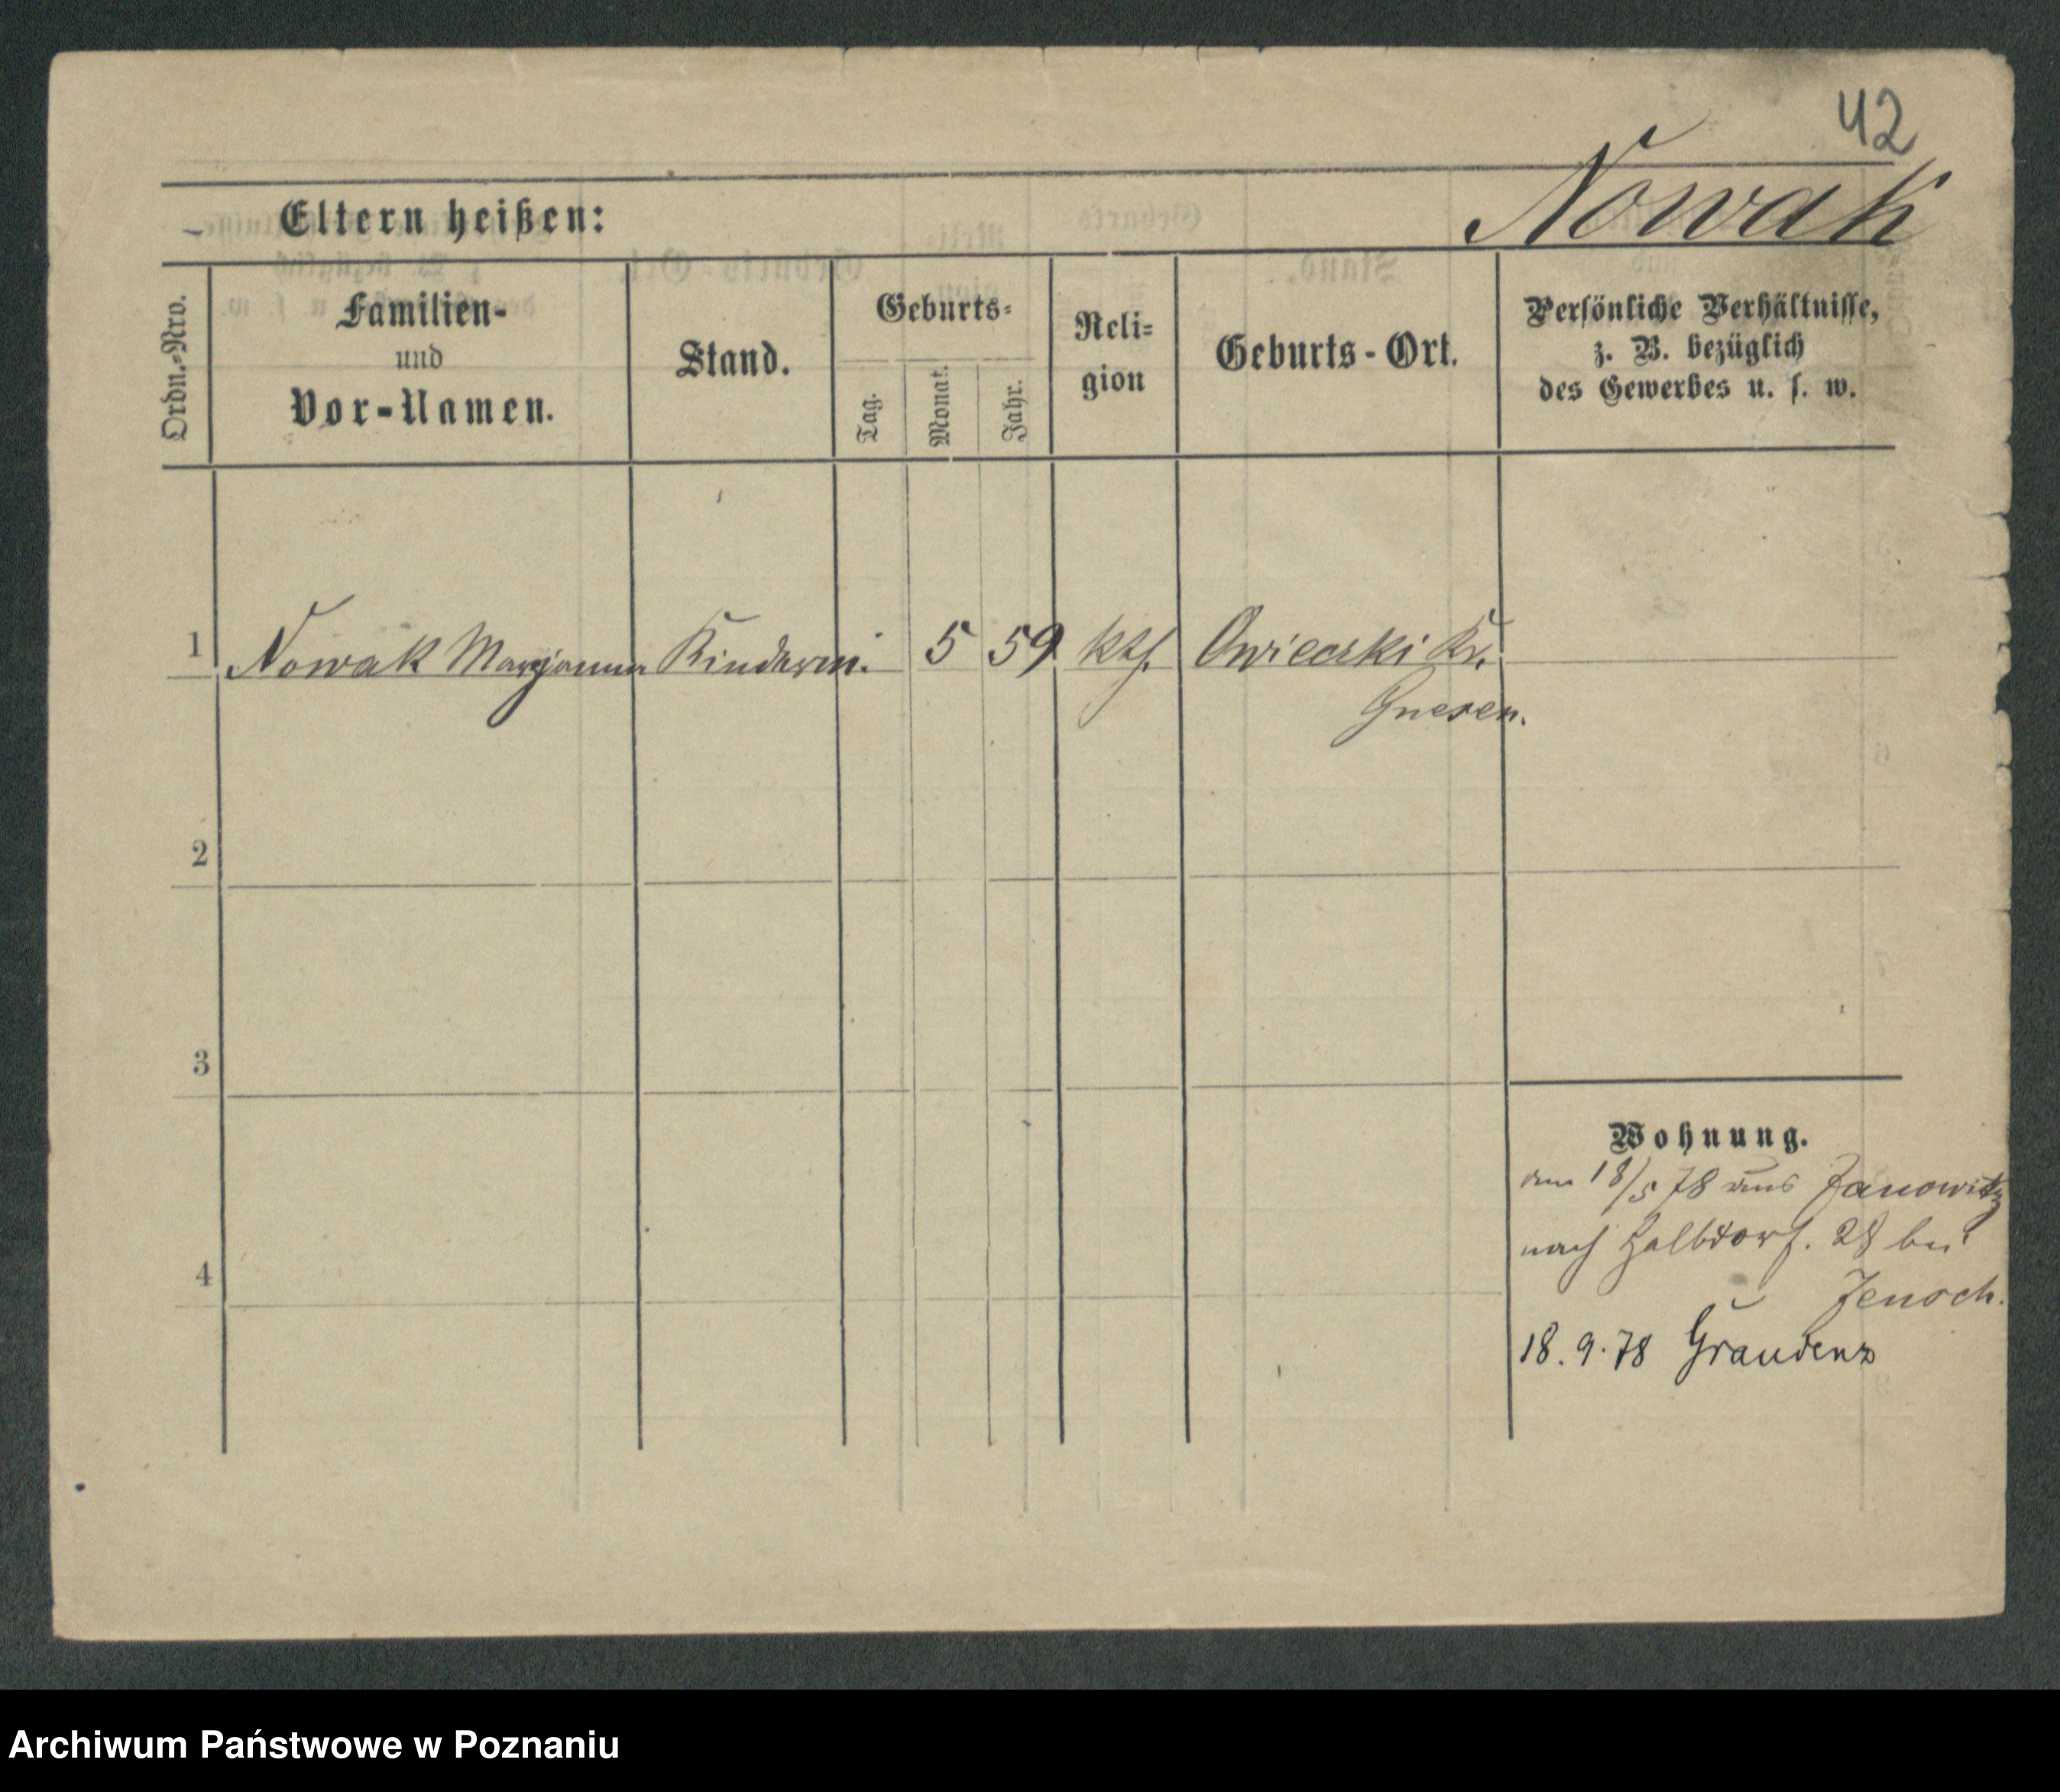 42
Nowak
Eltern heißen:
Ordn.-Nro.
Familien-
und
Vor-Namen.
Stand.
Geburts-
Tag.
Monat.
Jahr.
Reli-
gion
Geburts-Ort.
Persönliche Verhältnisse,
z. B. bezüglich
des Gewerbes u. s. w.
1 Nowak Marjanna Kinderm. 5 59 kth. Owieczki Kr.
Gnesen.
2
3
4
Wohnung.
am 18/5 78 aus Janowitz
nach Halbdorf. 28 bei
Jenoch.
18. 9. 78 Graudenz
Archiwum Państwowe w Poznaniu